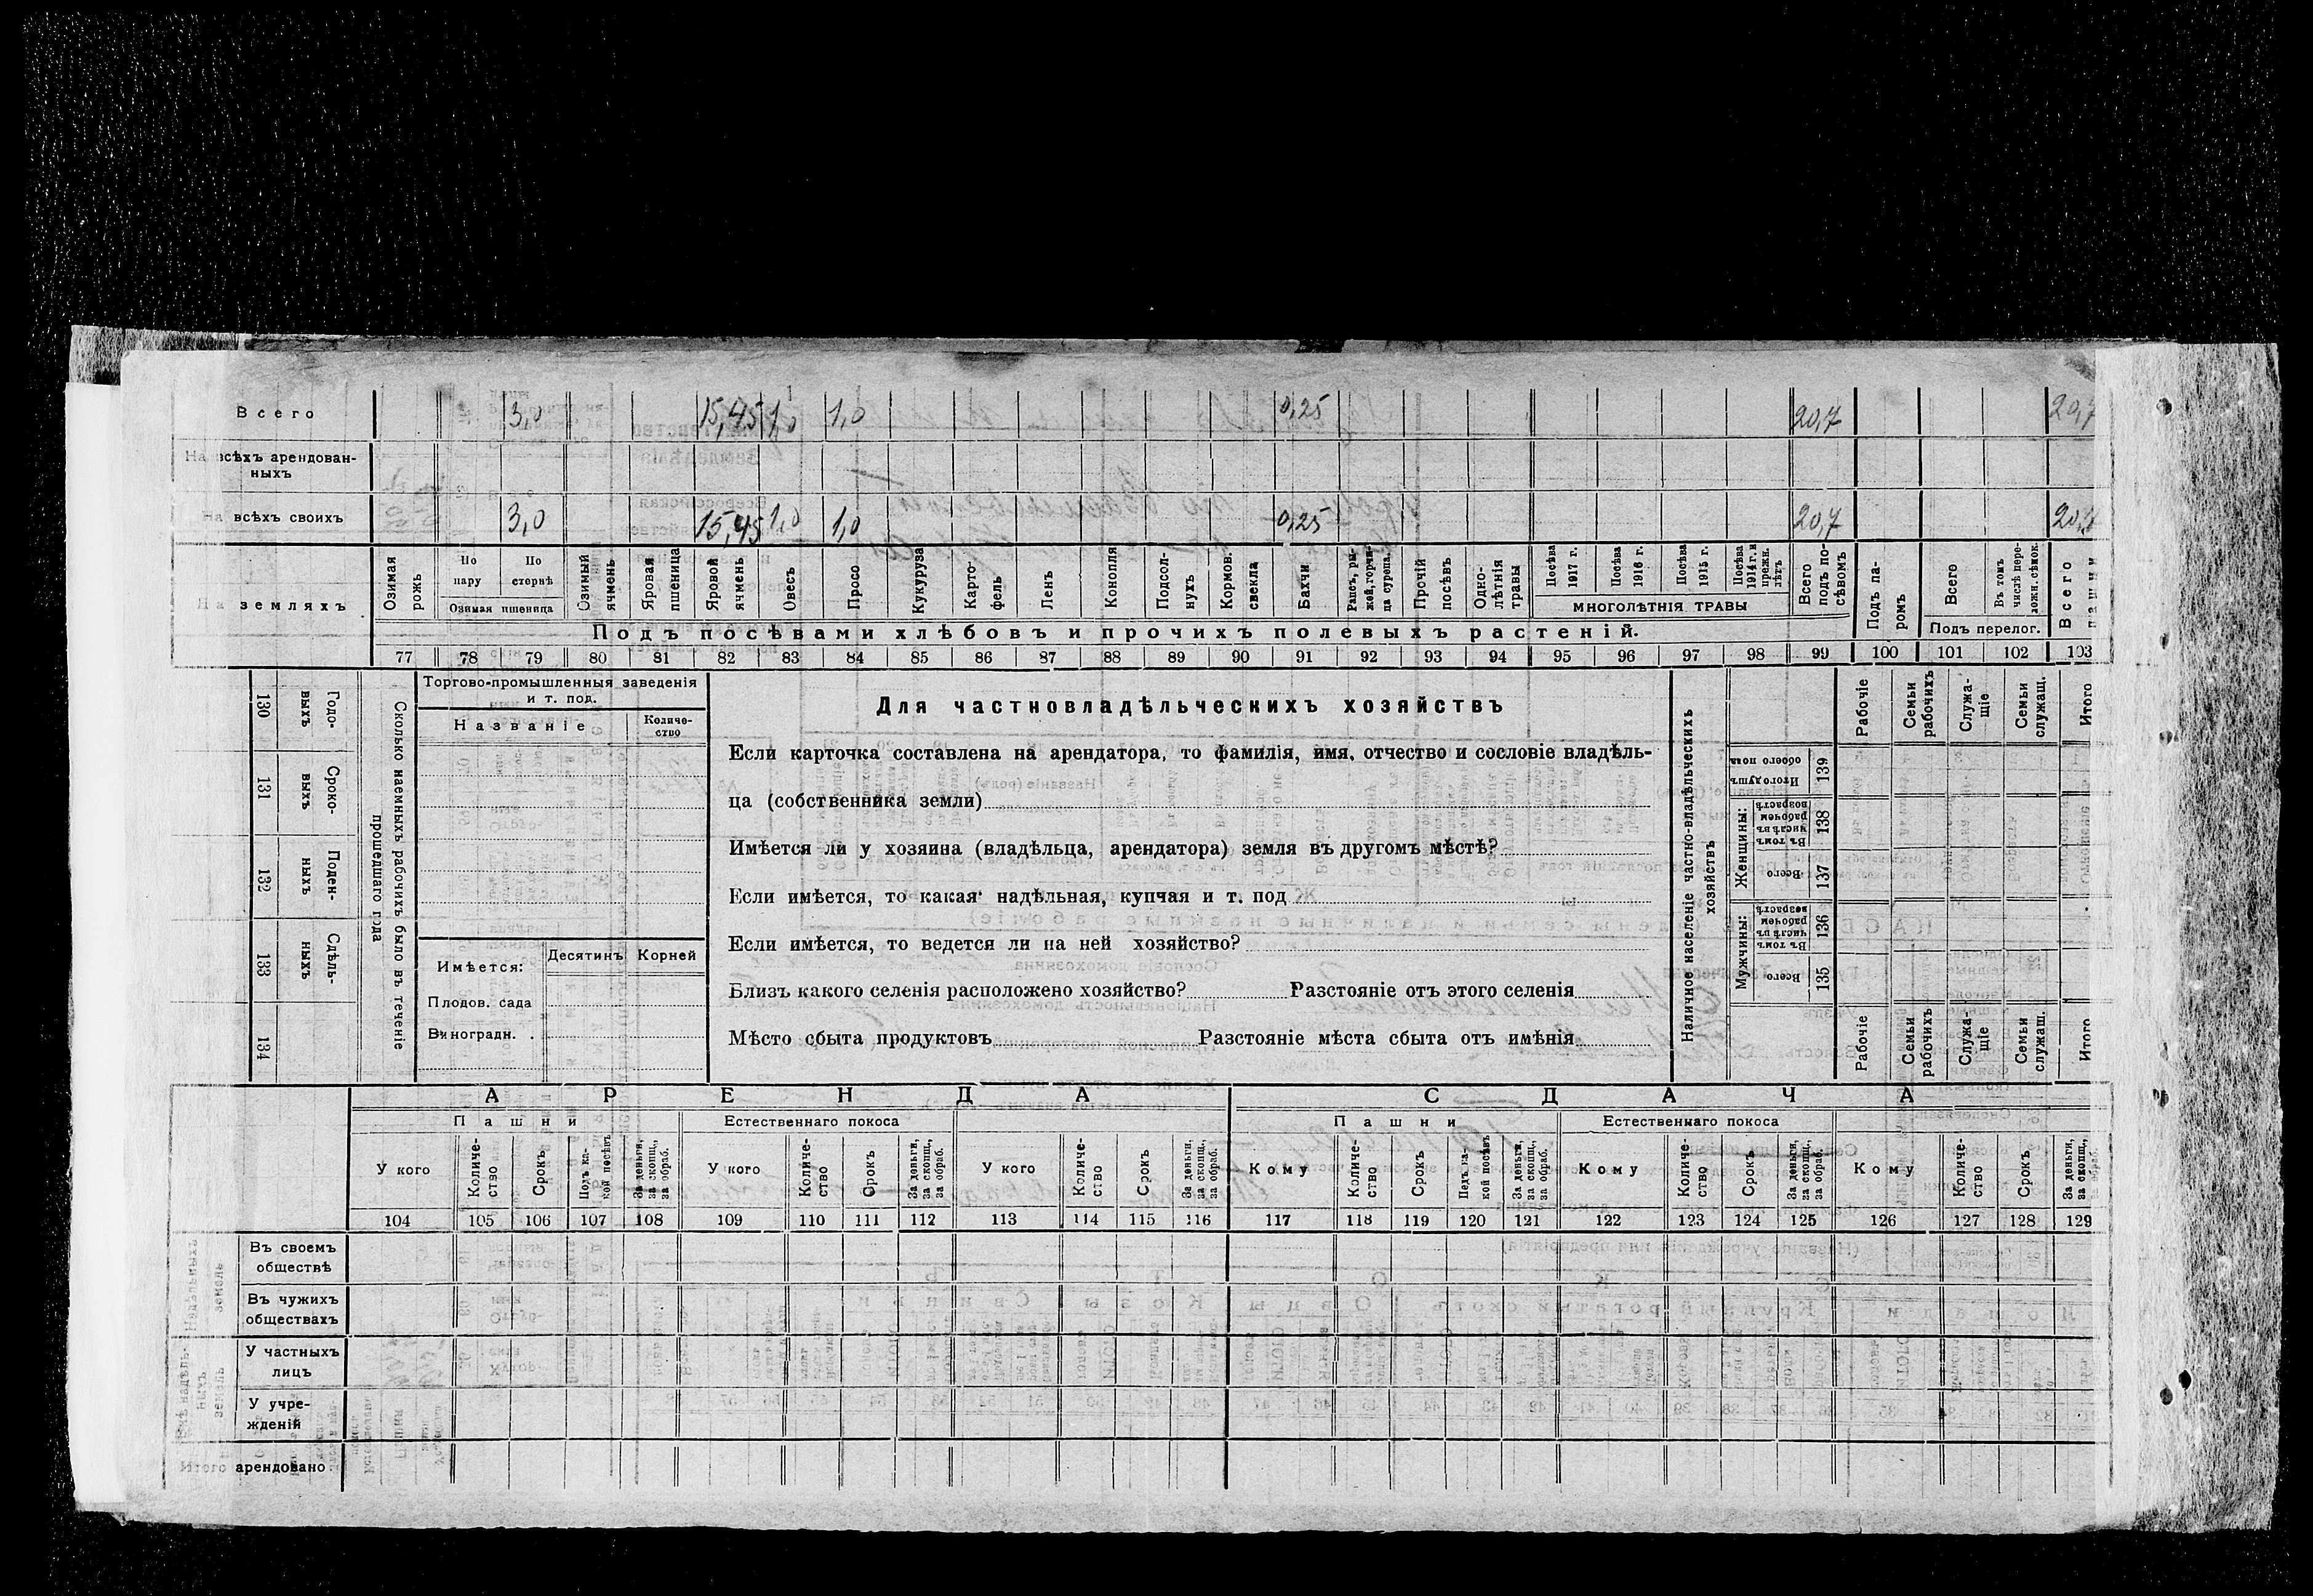 Всего 3,0 15,45 1,0 1,0 0,25 20,7 20,7
На всѣхъ арендован-
ныхъ
На всѣхъ своихъ 3,0 15,45 1,0 1,0 0,25 20,7
На земляхъ
Озимая рожь
По пару
По стернѣ
Озимая пшеница
Озимый ячмень
Яровая пшеница
Яровой ячмень
Овесъ
Просо
Кукуруза
Карто-
фель
Ленъ
Конопля
Подсол-
нухъ
Кормов. свекла
Бахчи
Рапсъ, ры-
жей, горчи-
ца сурепа.
Прочій посѣвъ
Одно-
лѣтнія травы
Посѣва 1917 г.
Посѣва 1916 г.
Посѣва 1915 г.
Посѣва 1914 г. и прежн. лѣтъ
МНОГОЛѢТНІЯ ТРАВЫ
Всего подъ по-
сѣвомъ
Подъ па-
ромъ
Всего
Въ томъ числѣ пере-
ложн. сѣнок.
Подъ перелог.
Всего пашни
Подъ посѣвами хлѣбовъ и прочихъ полевыхъ растеній.
77 78 79 80 81 82 83 84 85 86 87 88 89 90 91 92 93 94 95 96 97 98 99 100 101 102 103
130 Годо-
выхъ
131 Сроко-
выхъ
132 Поден-
ныхъ
133 Сдѣль-
ныхъ
134
Сколько наемныхъ рабочихъ было въ теченіе
прошедшаго года
Торгово-промышленныя заведенія
и т. под.
Названіе
Количе-
ство
Имѣется:
Десятинъ
Корней
Плодов. сада
Виноградн.
Для частновладѣльческихъ хозяйствъ
Если карточка составлена на арендатора, то фамилія, имя, отчество и сословіе владѣль-
ца (собственника земли)
Имѣется ли у хозяина (владѣльца, арендатора) земля въ другомъ мѣстѣ?
Если имѣется, то какая надѣльная, купчая и т. под
Если имѣется, то ведется ли на ней хозяйство?
Близъ какого селенія расположено хозяйство? Разстояніе отъ этого селенія
Мѣсто сбыта продуктовъ Разстояніе мѣста сбыта отъ имѣнія
Наличное населеніе частно-владѣльческихъ
хозяйствъ
Рабочіе
Семьи рабочихъ
Служа-
щіе
Семьи служащ.
Итого
Итого душъ обоего пола 139
Женщины:
Въ томъ числѣ въ рабочемъ возрастѣ 138
Всего 137
Мужчины:
Въ томъ числѣ въ рабочемъ возрастѣ 136
Всего 135
Рабочіе
Семьи рабочихъ
Служа-
щіе
Семьи служащ.
Итого
АРЕНДА СДАЧА
Пашни Естественнаго покоса Пашни Естественнаго покоса
У кого
Количе-
ство
Срокъ
Подъ ка-
кой посѣвъ
За деньги, за скопщ., за обраб.
У кого
Количе-
ство
Срокъ
За деньги, за скопщ., за обраб.
У кого
Количе-
ство
Срокъ
За деньги, за скопщ., за обраб.
Кому
Количе-
ство
Срокъ
Подъ ка-
кой посѣвъ
За деньги, за скопщ., за обраб.
Кому
Количе-
ство
Срокъ
За деньги, за скопщ., за обраб.
Кому
Количе-
ство
Срокъ
За деньги, за скопщ.,
104 105 106 107 108 109 110 111 112 113 114 115 116 117 118 119 120 121 122 123 124 125 126 127 128 129
Надѣльныхъ земель
Въ своемъ
обществѣ
Въ чужихъ
обществахъ
Внѣ надѣль-
ныхъ земель
У частныхъ
лицъ
У учре-
жденій
Итого арендовано